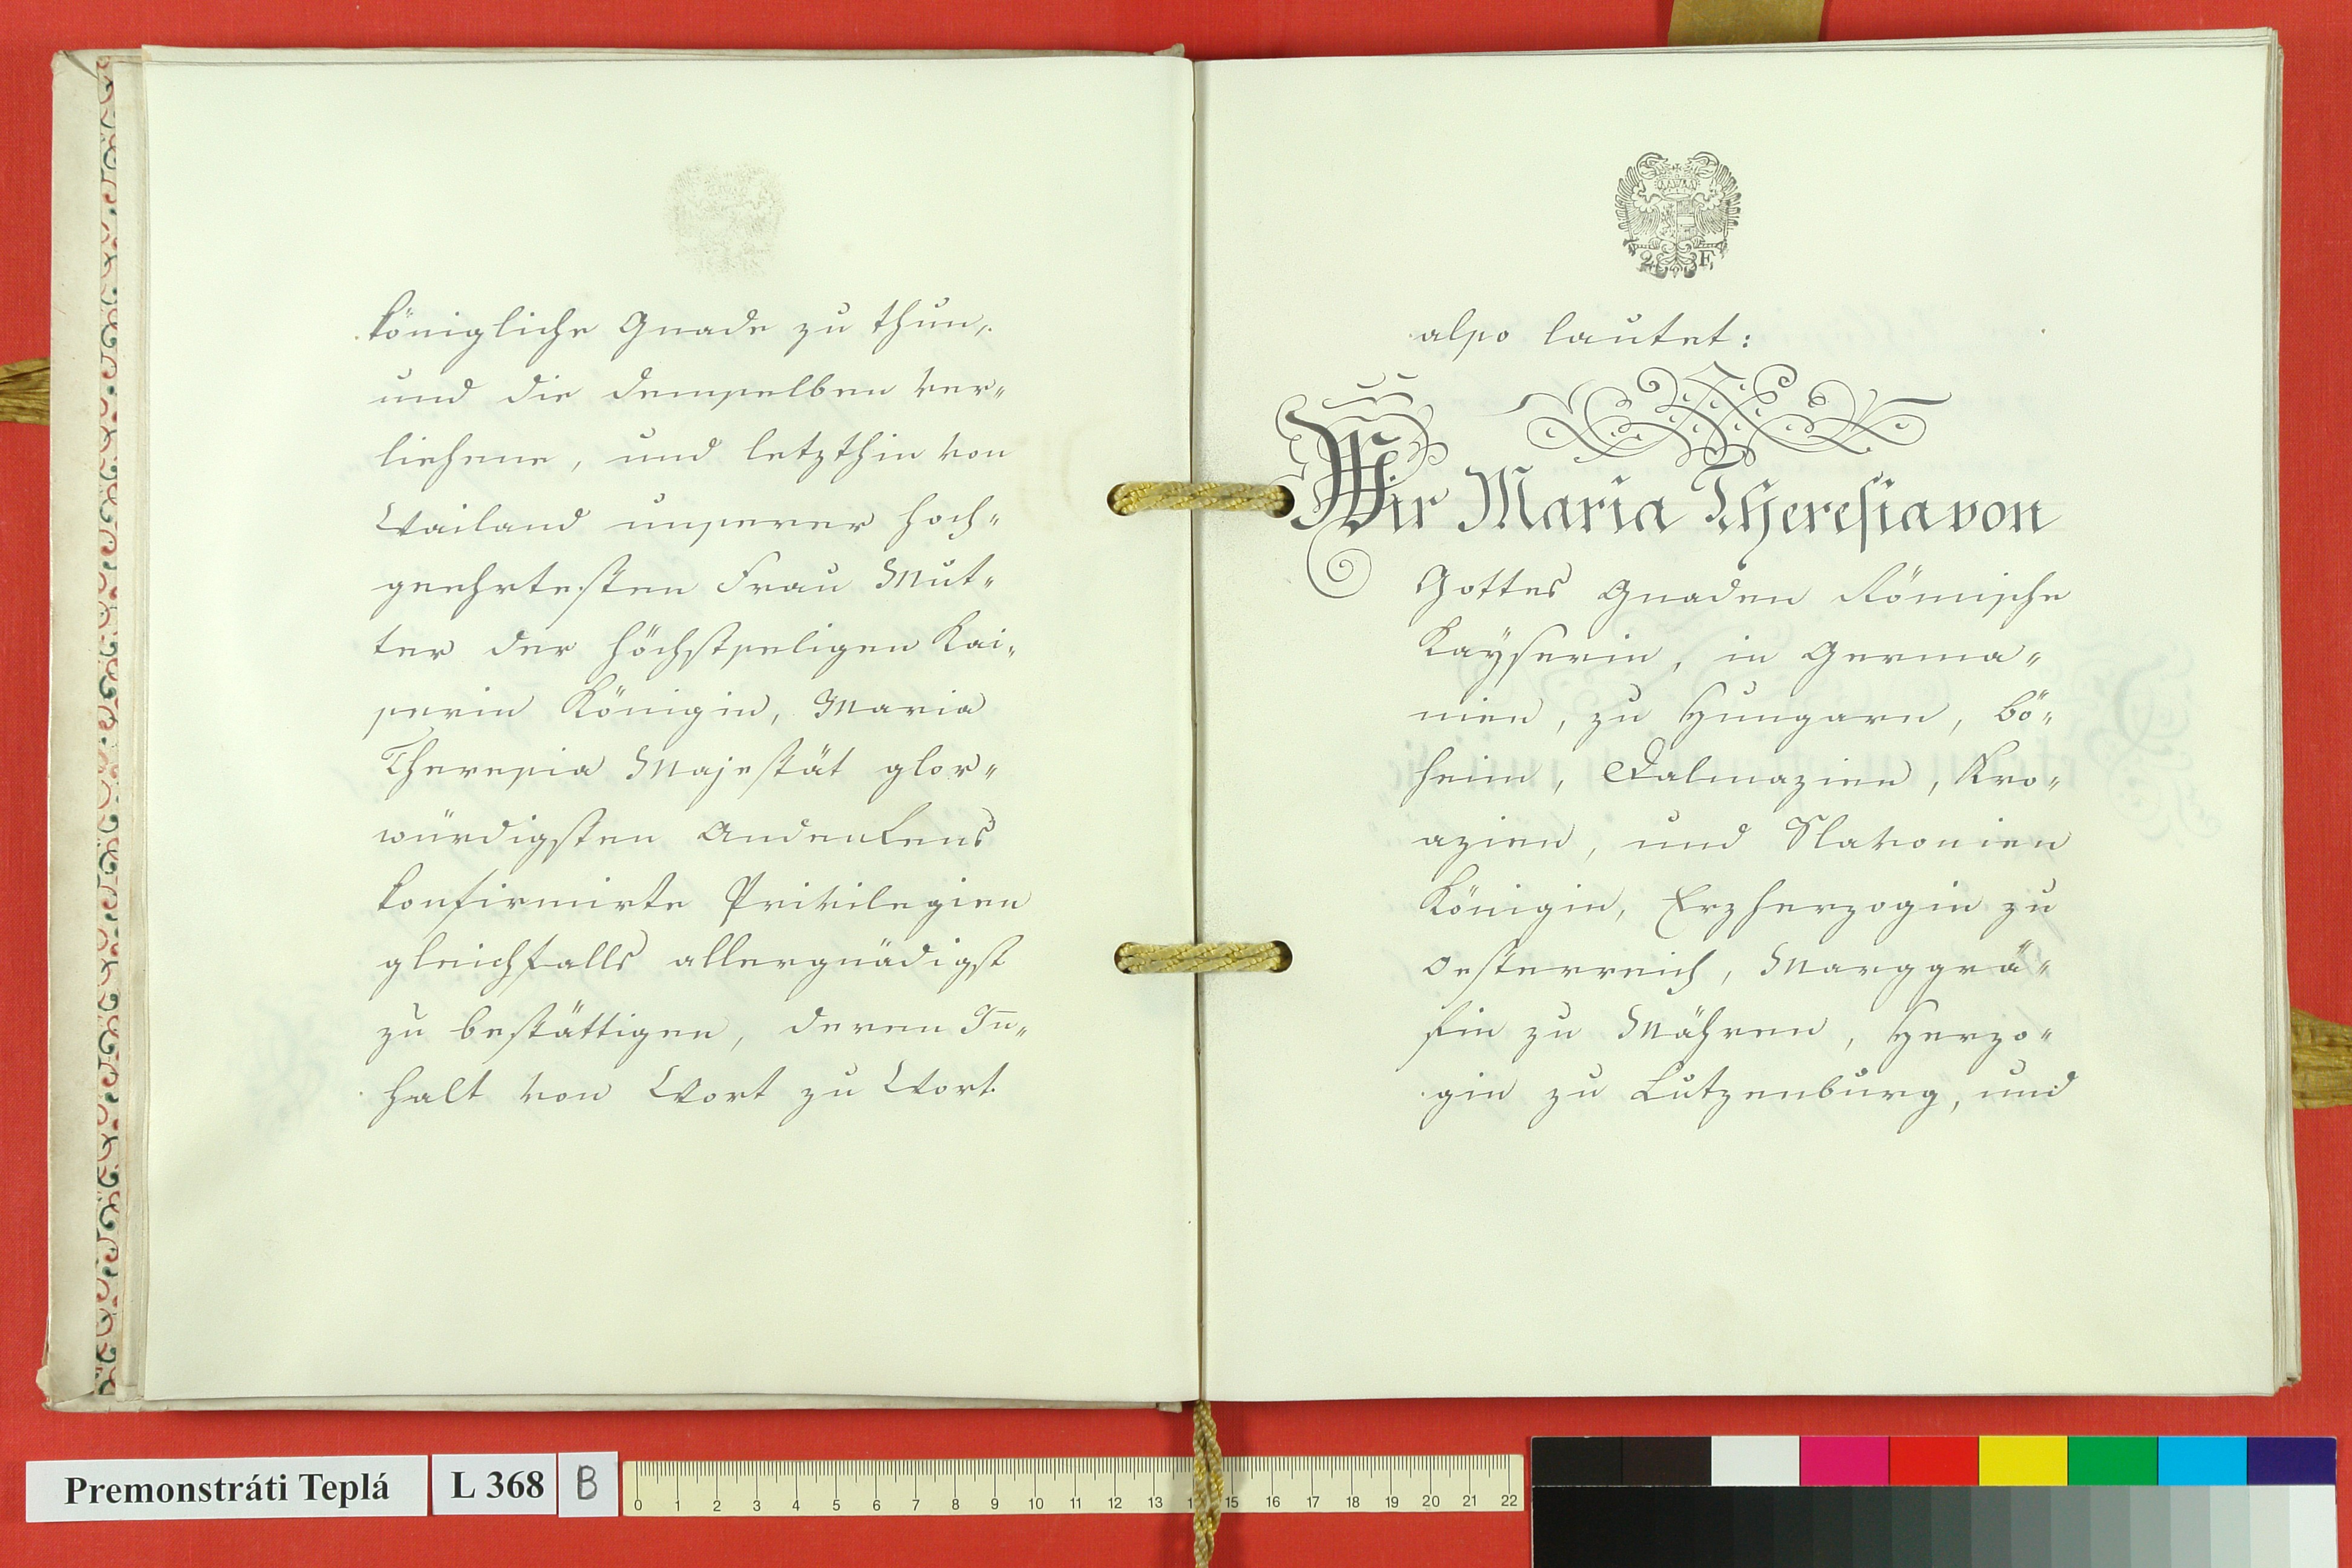 königliche Gnade zu thun,
und die demselben ver„
liehene, und letzthin von
Wailand unserer hoch„
geehrtesten Frau Mut„
ter der höchstseligen Kai„
serin Königin, Maria
Theresia Majestät glor„
würdigsten Andenkens
konfirmirte Privilegien
gleichfalls allergnädigst
zu bestättigen, deren In„
halt von Wort zu Wort
2 F
also lautet:
Wir Maria Theresia von
Gottes Gnaden Römische
Kaÿserin, in Germa„
nien, zu Hungarn, Bö„
heim, Dalmazien, Kro„
azien, und Slavonien
Königin, Erzherzogin zu
Oesterreich, Marggrä„
fin zu Mähren, Herzo„
gin zu Lutzenburg, und
Premonstráti Teplá L 368 B
0 1 2 3 4 5 6 7 8 9 10 11 12 13 15 16 17 18 19 20 21 22